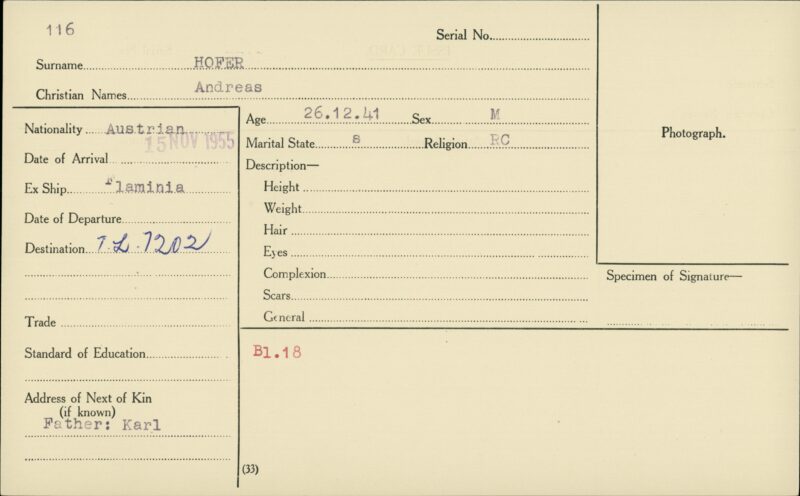 116
Serial No.
Surname HOFER
Christian Names Andreas
Nationality Austrian
15 NOV 1955
Date of Arrival
Ex Ship Flaminia
Date of Departure
Destination T.L. 7202
Trade
Standard of Education
Address of Next of Kin
(if known)
Father: Karl
Age 26.12.41 Sex M
Marital State s Religion RC
Description—
Height
Weight
Hair
Eyes
Complexion
Scars
General
Bl.18
(33)
Photograph.
Specimen of Signature—